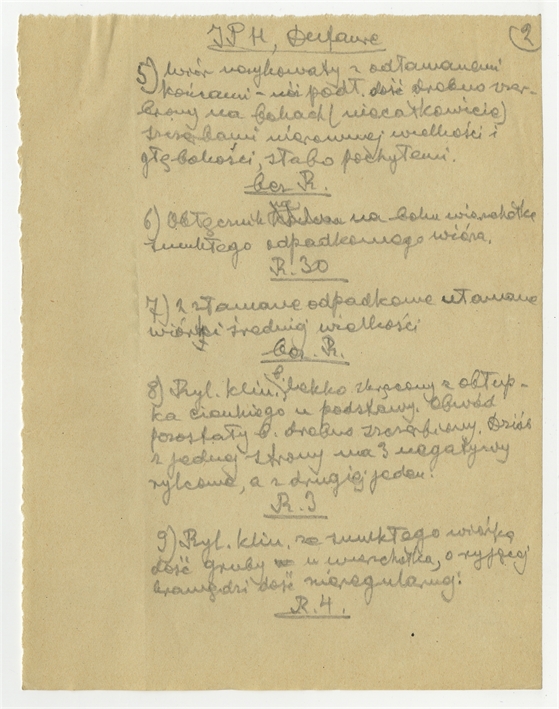 JPH, Dufaure
2
5) wiór nożykowaty z odłamanemi
końcami - na podł. dość drobno szcer-
biony na bokach (niecałkowicie)
szczerbami nierównej wielkości i
głębokości, słabo pochyłemi.
bez R.
6) Obłęcznik na boku wierzchołka
smukłego odpadkowego wióra.
R. 30
7) 2 złamane odpadkowe ułamane
wiórki średniej wielkości
bez R.
8) Ryl. klin. b. lekko skręcony z obłup-
ka cienkiego u podstawy. Obwód
pozostały b. drobno szczerbiony. Dziób
z jednej strony ma 3 negatywy
rylcowe, a z drugiej jeden.
R. 3
9) Ryl. klin. ze smukłego wiórka
dość gruby u wierzchołka, o ryjącej
krawędzi dość nieregularnej.
R. 4.